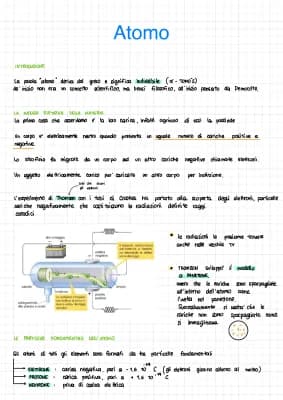 Atomo
INTRODUZIONE
La parola "atomo" deriva dal greco e significa indivisibile (α - TOMOS)
All'inizio non era un concetto scientifico, ma bensì filosofico, all'inizio pensato da Democrito.
LA NATURA ELETTRICA DELLA MATERIA
La prima cosa che scopriamo è la loro carica, infatti ognuno di essi la possiede
Un corpo è elettricamente neutro quando presenta un uguale numero di cariche positive e
negative.
Lo strofinio fa migrare da un corpo ad un altro cariche negative chiamate elettroni.
Un oggetto elettricamente carico può caricare un altro corpo per induzione.
L'esperimento di Thomson con i tubi di Crookes ha portato alla scoperta degli elettroni, particelle
cariche negativamente che costituiscono le radiazioni definite raggi
catodici
le radiazioni le possiamo trovare
anche nelle vecchie TV
THOMSON sviluppò il modello
a PANETTONE,
ossia che le cariche sono sparpagliate
all'interno dell'atomo come
l'uvetta nel panettone.
cariche non sono sparpagliate come
si immaginava.
LE PARTICELLE FONDAMENTALI DELL'ATOMO
Gli atomi di tutti gli elementi sono formati da tre particelle fondamentali
ELETTRONE : carica negativa, pari a - 1,6 · 10⁻¹⁹ C (gli elettroni girano attorno al nucleo)
PROTONE : carica positiva, pari a + 1,6 · 10⁻¹⁹ C
NEUTRONE : priva di carica elettrica